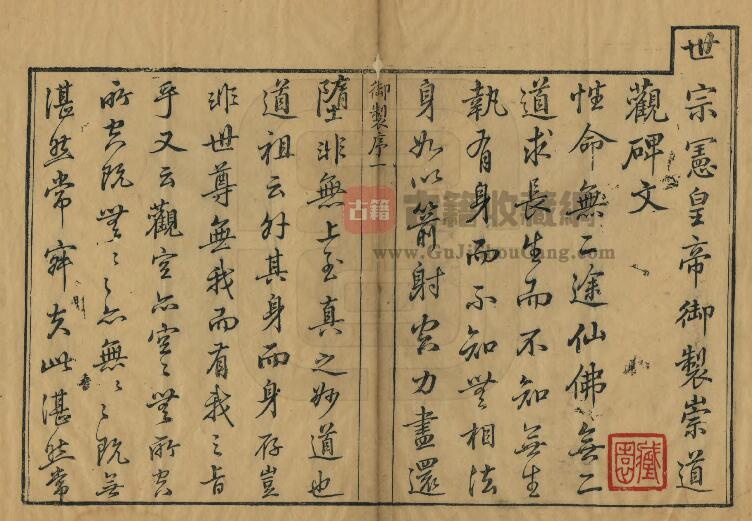 世宗憲皇帝御製崇道
觀碑文
性命無二途仙佛無二
道求長生而不知無生
執有身而不知無相法
身如以箭射空力盡還
御製序一
墮非無上至真之妙道也
道祖云外其身而身存豈
非世尊無我而有我之旨
乎又云觀空亦空空無所空
所空既無無亦無無無既無
湛然常寂夫此湛然常
古籍
古籍收藏網
www.GuJiShouCang.com